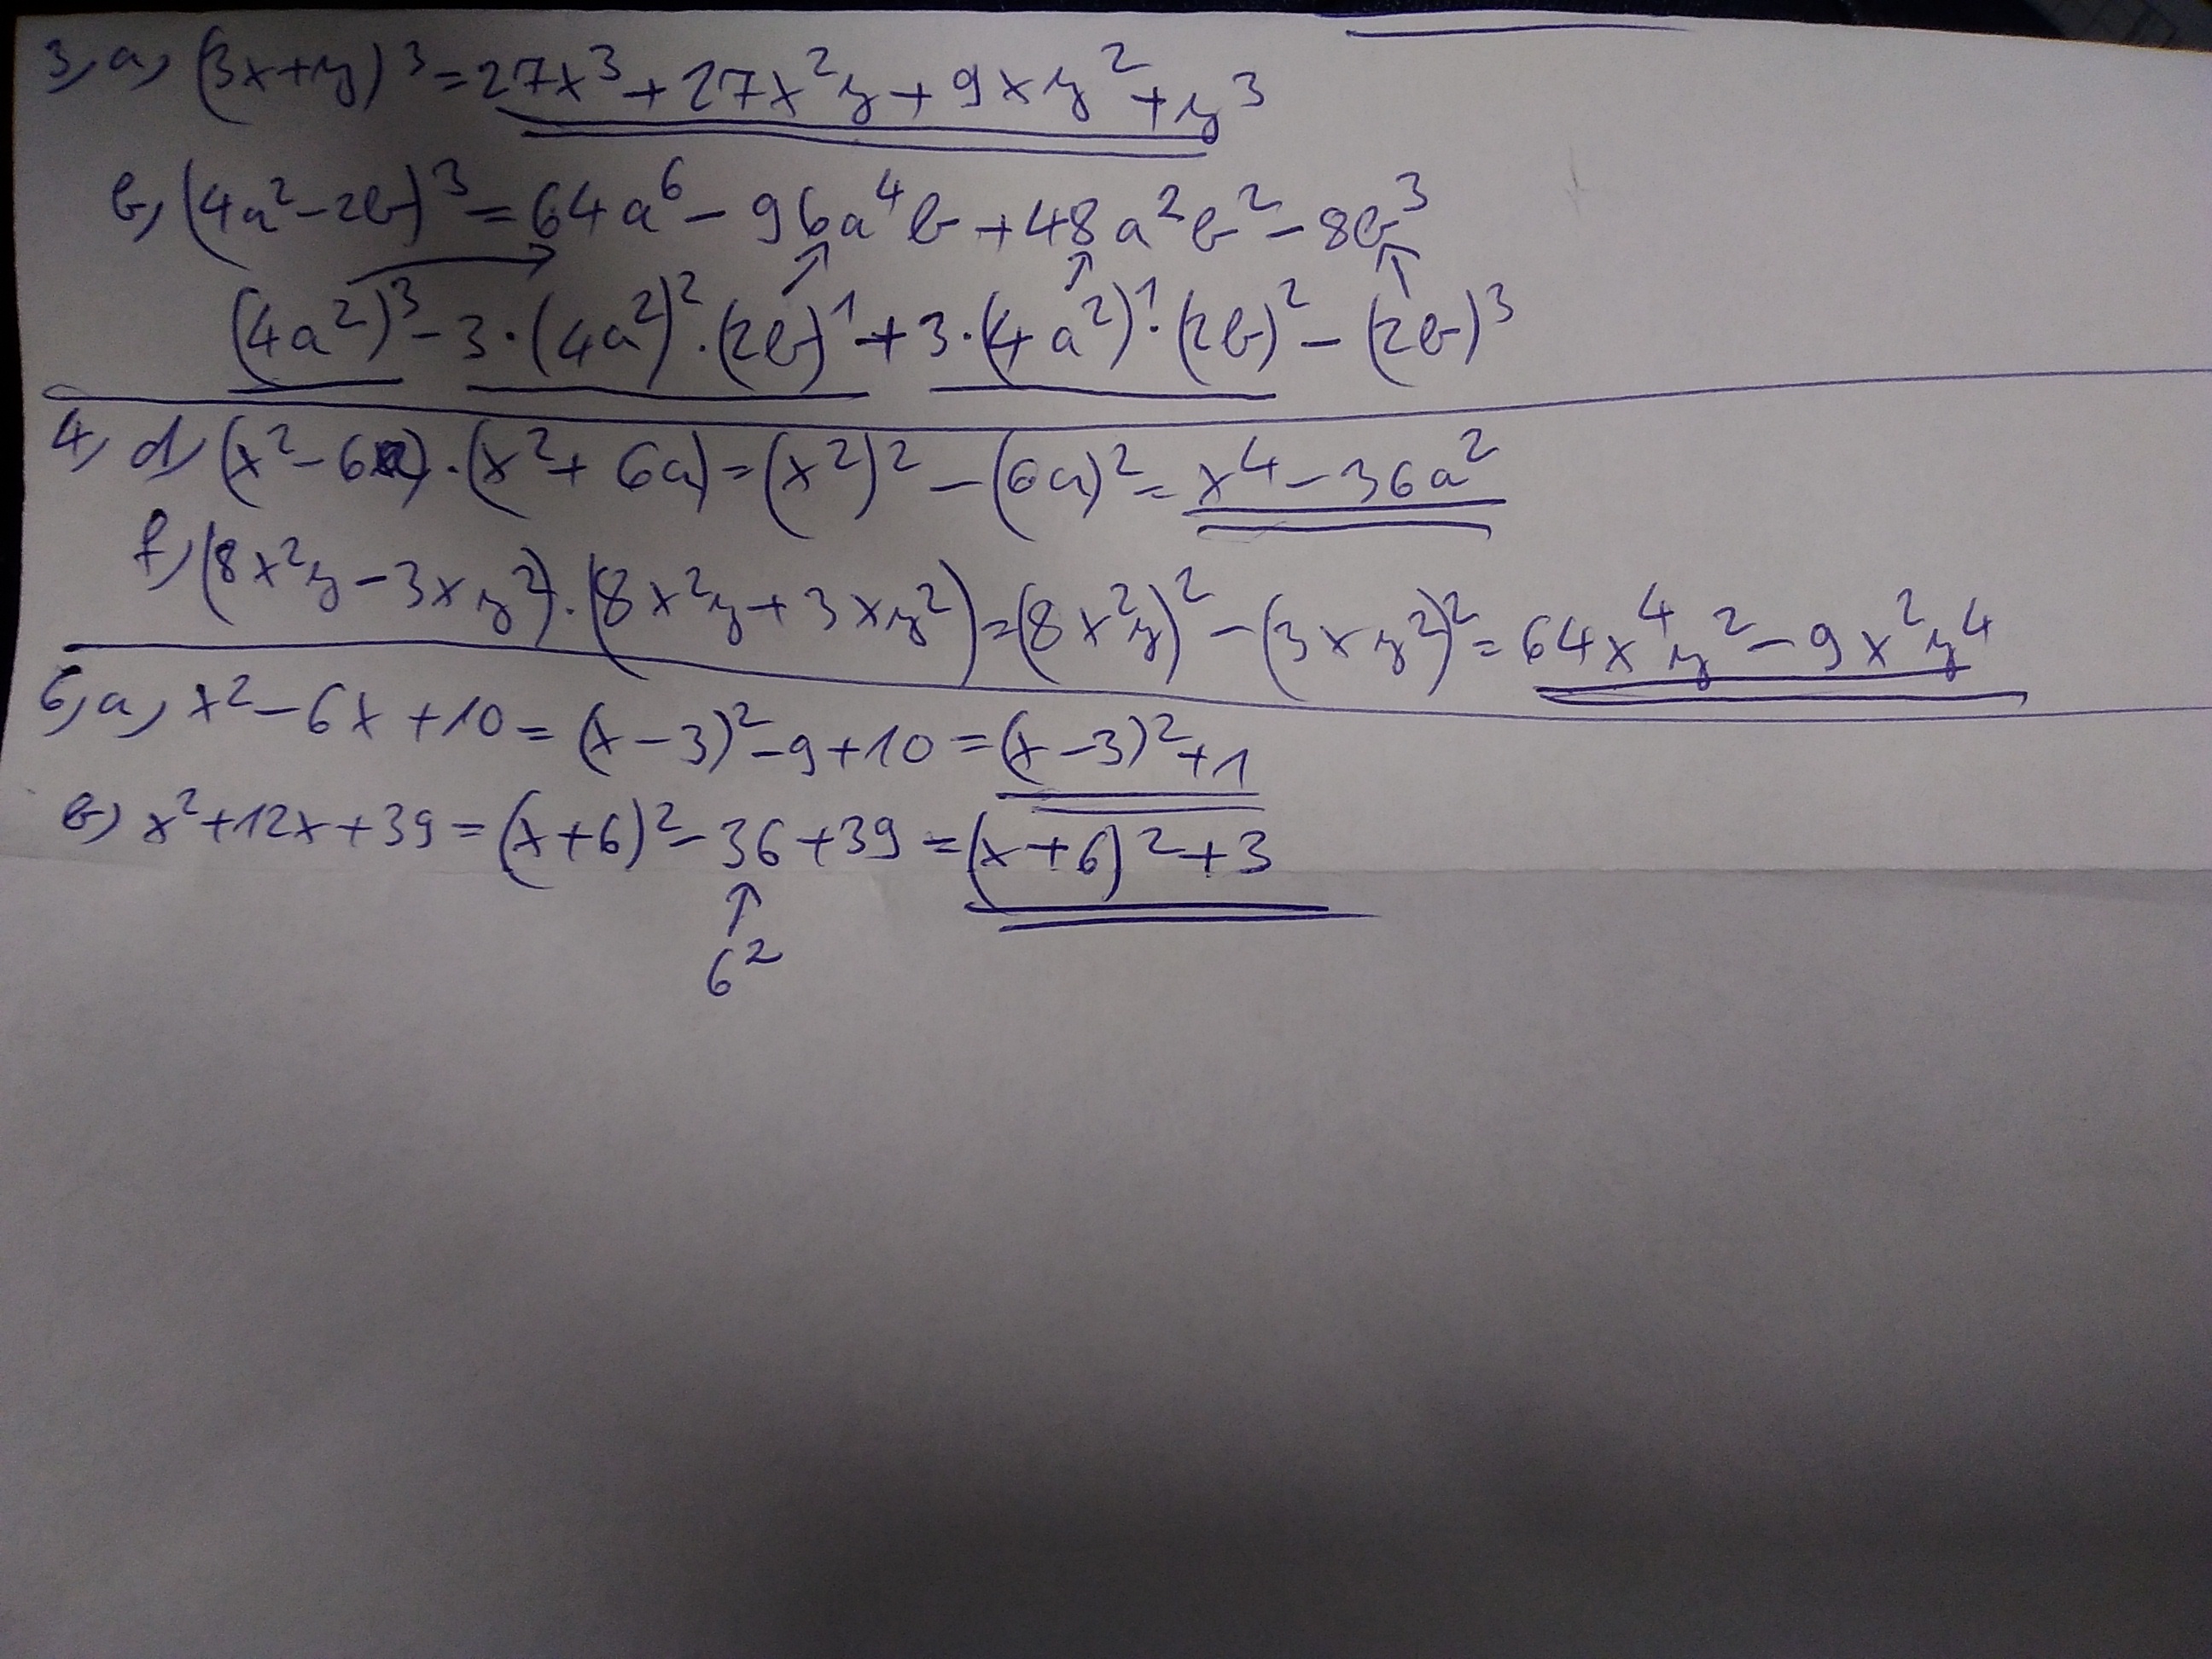 3, a, (3x+y)³=27x³+27x²y+9xy²+y³
b, (4a²-2b)³=64a⁶-96a⁴b+48a²b²-8b³
(4a²)³-3·(4a²)²·(2b)¹+3·(4a²)¹·(2b)²-(2b)³
4, d, (x²-6a)·(x²+6a)=(x²)²-(6a)²=x⁴-36a²
f, (8x²y-3xy²)·(8x²y+3xy²)=(8x²y)²-(3xy²)²=64x⁴y²-9x²y⁴
6, a, x²-6x+10=(x-3)²-9+10=(x-3)²+1
b) x²+12x+39=(x+6)²-36+39=(x+6)²+3
↑
6²